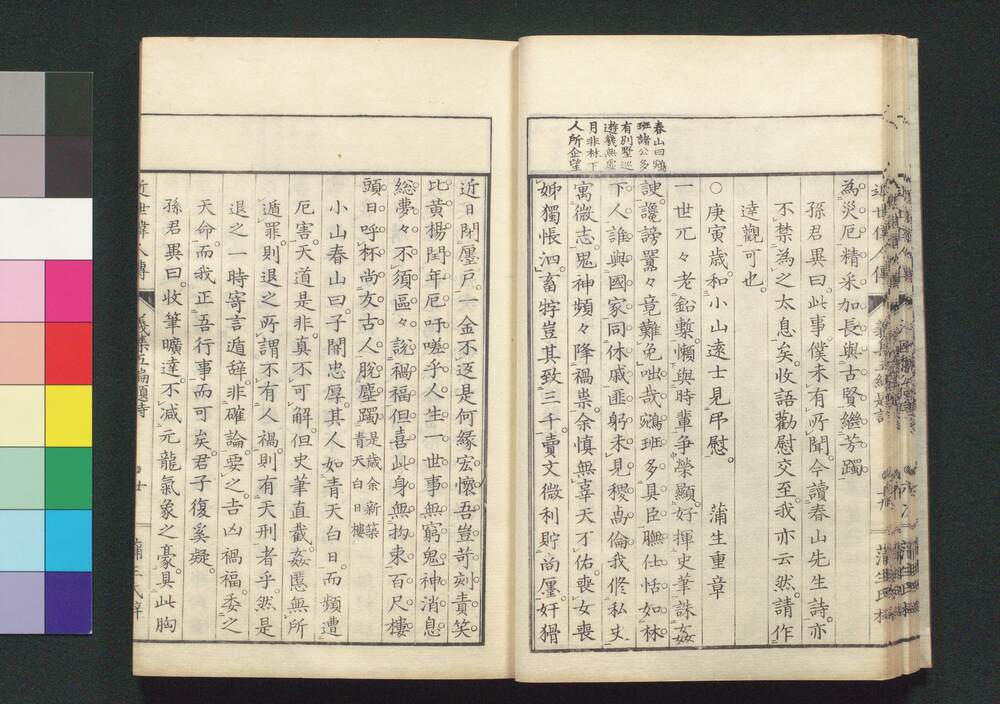 春山曰鵷
班諸公多
有別墅巡
遊幾無虛
月非林下
人所企望
為災厄精采加長與古賢繼芳躅
孫君異曰此事僕未有所聞今讀春山先生詩亦
不禁為之太息矣收語勸慰交至我亦云然請作
達觀可也
○庚寅歲和小山遠士見弔慰 蒲生重章
一世兀々老鉛槧懶與時輩爭榮顯好揮史筆誅姦
諛讒謗囂々竟難免咄哉鵷班多具臣膴仕恬如林
下人誰與國家同休戚匪躬未見稷卨倫我修私史
寓微志鬼神頻々降禍祟余慎無辜天不佑喪女喪
姊獨悵泗畜牸豈其致三千賣文微利貯商廛奸猾
近日閉廛戶一金不返是何緣宏懷吾豈苛刻責笑
比黃楊閏年厄吁嗟乎人生一世事無窮鬼神消息
總夢々不須區々說禍福但喜此身無拘束百尺樓
頭日呼杯尚友古人脫塵躅是歲余新築
青天白日樓
小山春山曰子闇忠厚其人如青天白日而頻遭
厄害天道是非真不可解但史筆直截姦慝無所
遁罪則退之所謂不有人禍則有天刑者乎然是
退之一時寄言遁辭非確論要之吉凶禍福委之
天命而我正吾行事而可矣君子復奚疑
孫君異曰收筆曠達不減元龍氣象之豪具此胸
近世偉人傳 義集五編題詩